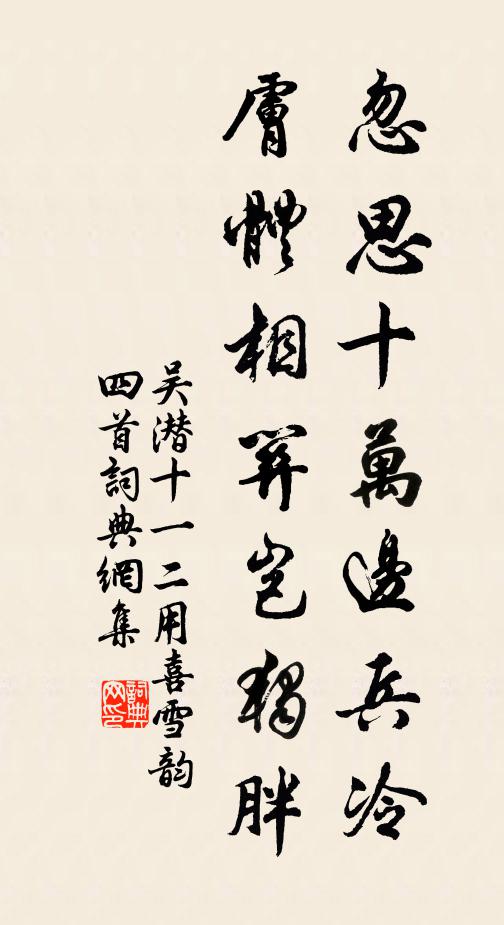 忽思十萬邊兵冷
膚體相關豈獨胖
吳潛十一二用喜雪韵
四首詞典網集
詞典網印